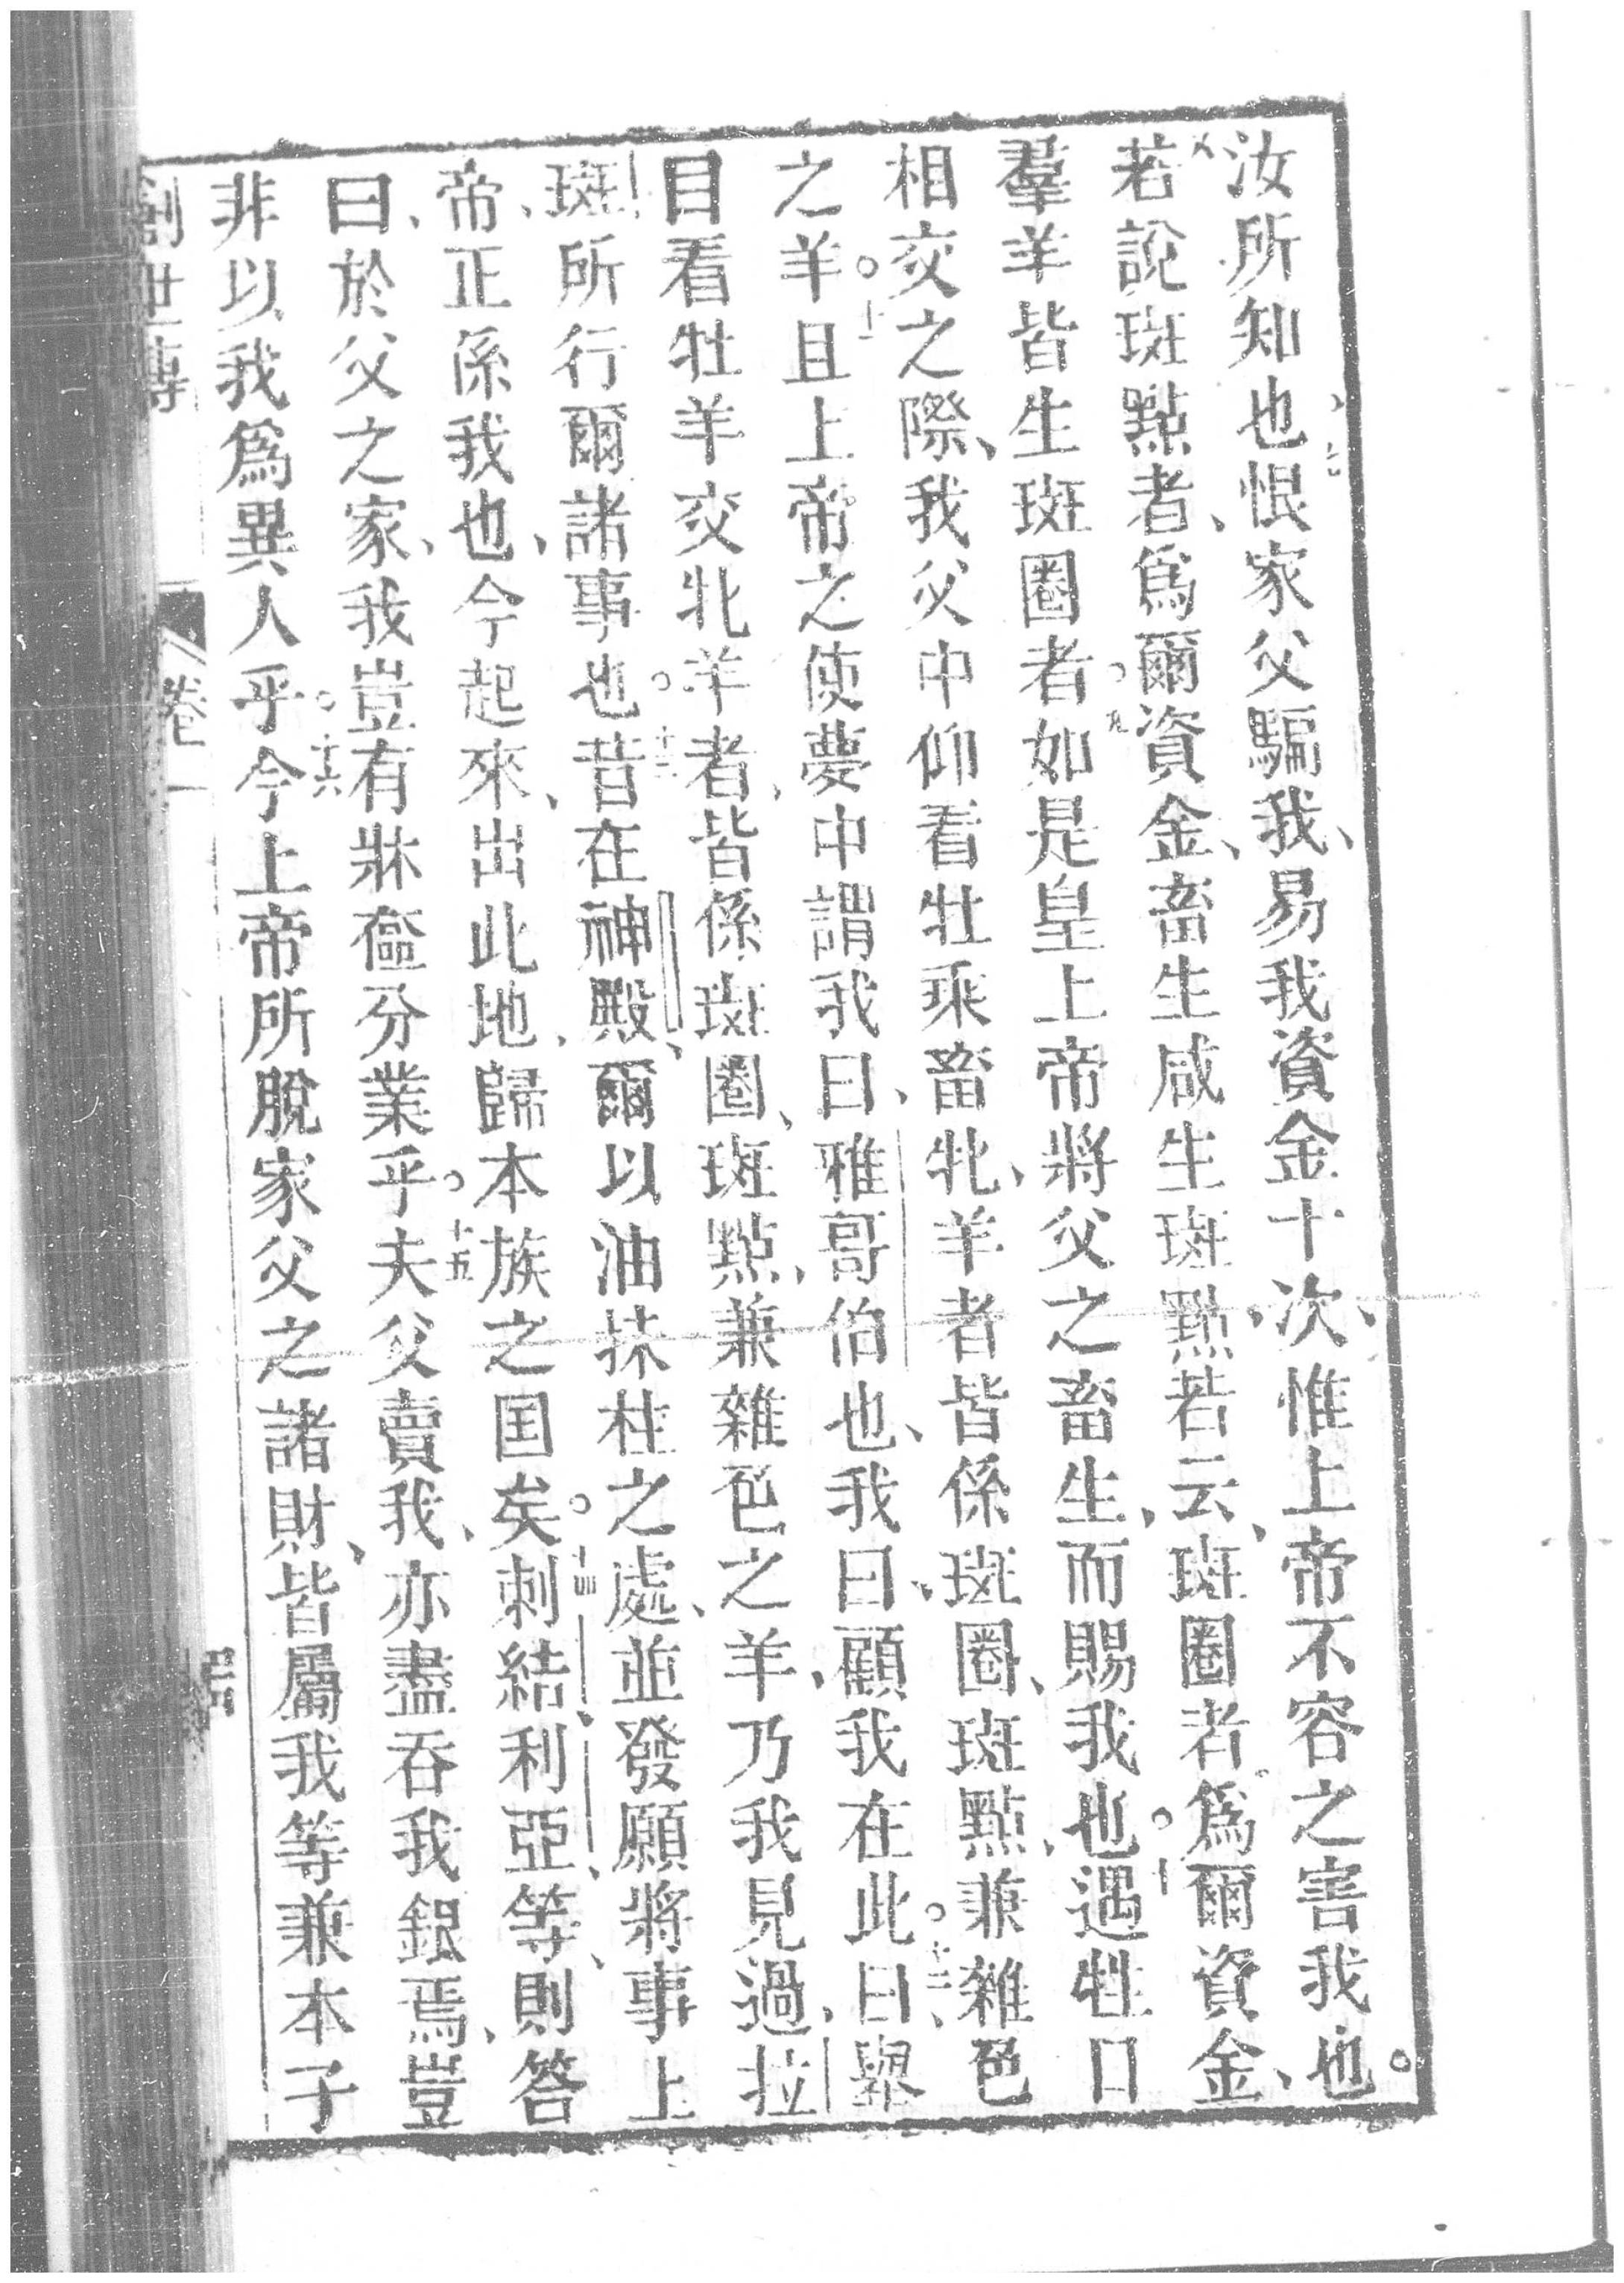 汝所知也、七恨家父騙我、易我資金十次、惟上帝不容之害我也。
八若說斑點者、爲爾資金、畜生咸生斑點、若云、斑圈者爲爾資金、
羣羊皆生斑圈者。九如是皇上帝將父之畜生、而賜我也。十遇牲口
相交之際、我父中仰看牡乘畜牝、羊者皆係斑圈、斑點、兼雜色
之羊。十一且上帝之使夢中謂我曰、雅哥伯也、我曰、顧我在此。十二曰、舉
目看牡羊交牝羊者、皆係斑圈、斑點、兼雜色之羊、乃我見過、拉
班所行爾諸事也。十三昔在神殿、爾以油抹柱之處、並發願將事上
帝、正係我也、今起來、出此地、歸本族之国矣。十四剌結、利亞等、則答
曰、於父之家、我豈有牀奩分業乎。十五夫父賣我、亦盡吞我銀焉、豈
非以我爲異人乎。十六今上帝所脫家父之諸財、皆屬我等兼本子
創世傳 卷一